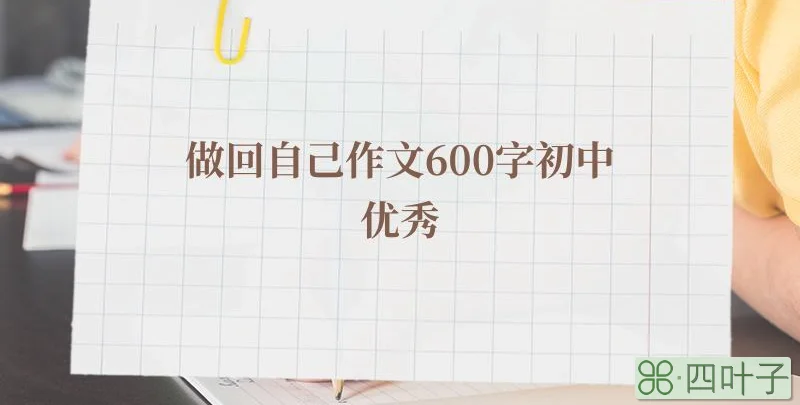 做回自己作文600字初中
优秀
四叶子